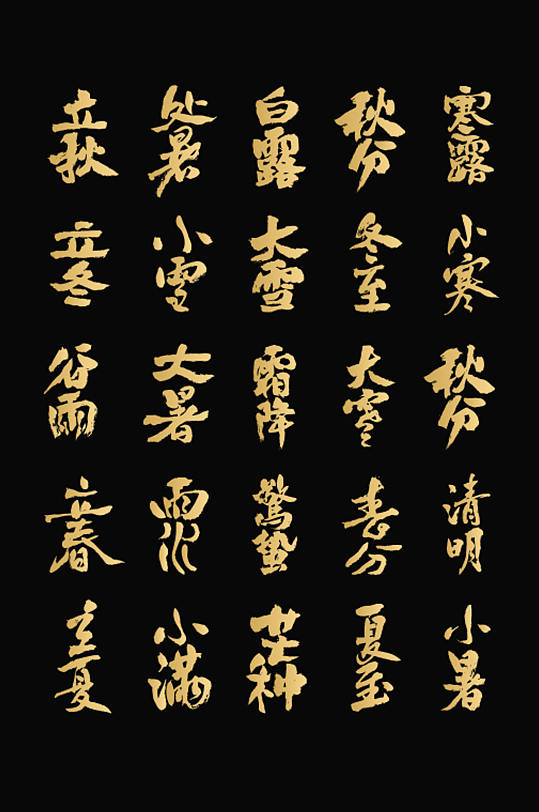 立秋
处暑
白露
秋分
寒露
立冬
小雪
大雪
冬至
小寒
谷雨
大暑
霜降
大寒
秋分
立春
雨水
驚蛰
春分
清明
立夏
小满
芒种
夏至
小暑